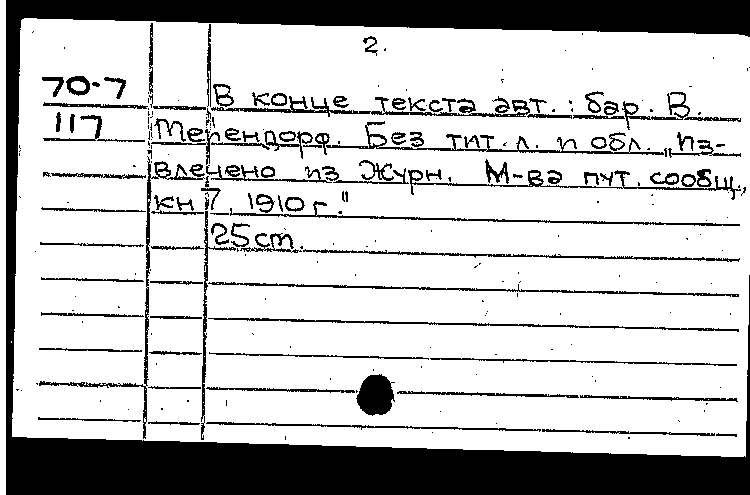 2.
70-7 В конце текста авт.: бар. В.
117 Мейендорф. Без тит. л. и обл. „Из-
влечено из Журн. М-ва пут. сообщ.,
кн 7, 1910 г."
25 cm.